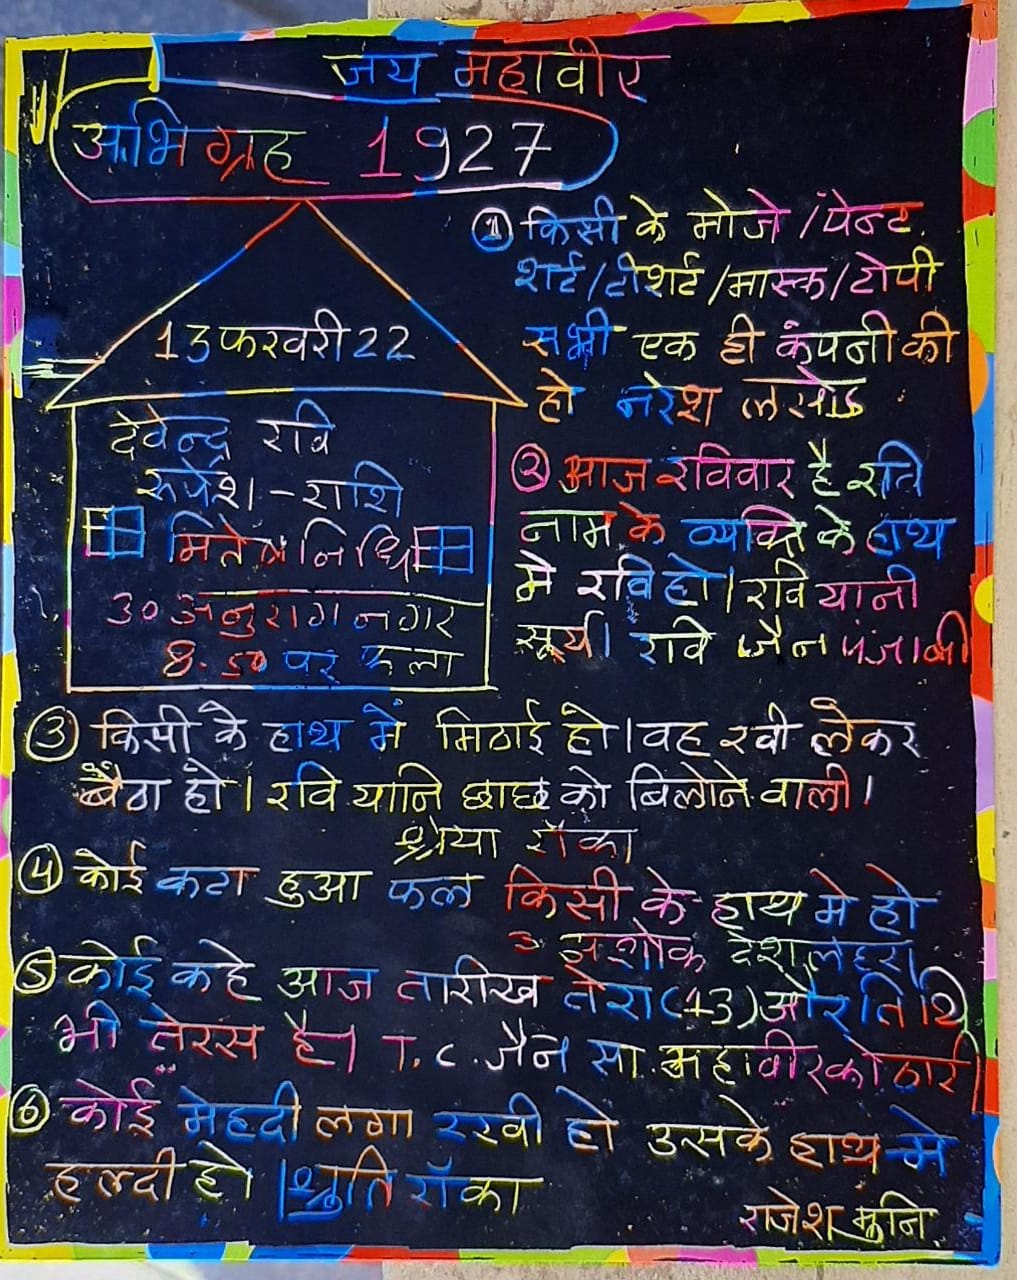 जय महावीर
अभिग्रह 1927
13 फरवरी 22
देवेन्द्र रवि
रूपेश - राशि
मितेश निधि
30 अनुराग नगर
8.50 पर फला
① किसी के मोजे / पेन्ट
शर्ट / टीशर्ट / मास्क / टोपी
सभी एक ही कंपनी की
हो नरेश लसोड
② आज रविवार है रवि
नाम के व्यक्ति के हाथ
मे रवि हो। रवि यानी
सूर्य। रवि जैन पंजाबी
③ किसी के हाथ में मिठाई हो। वह रवी लेकर
बैठा हो। रवि यानि छाछ को बिलोने वाली।
श्रेया राँका
④ कोई कटा हुआ फल किसी के हाथ मे हो
अशोक देशलहरा
⑤ कोई कहे आज तारीख तेरा (13) और तिथि
भी तेरस है। T.C. जैन सा. महावीर कोठारी
⑥ कोई मेहदी लगा रखी हो उसके हाथ मे
हल्दी हो। श्रुति राँका
राजेश मुनि